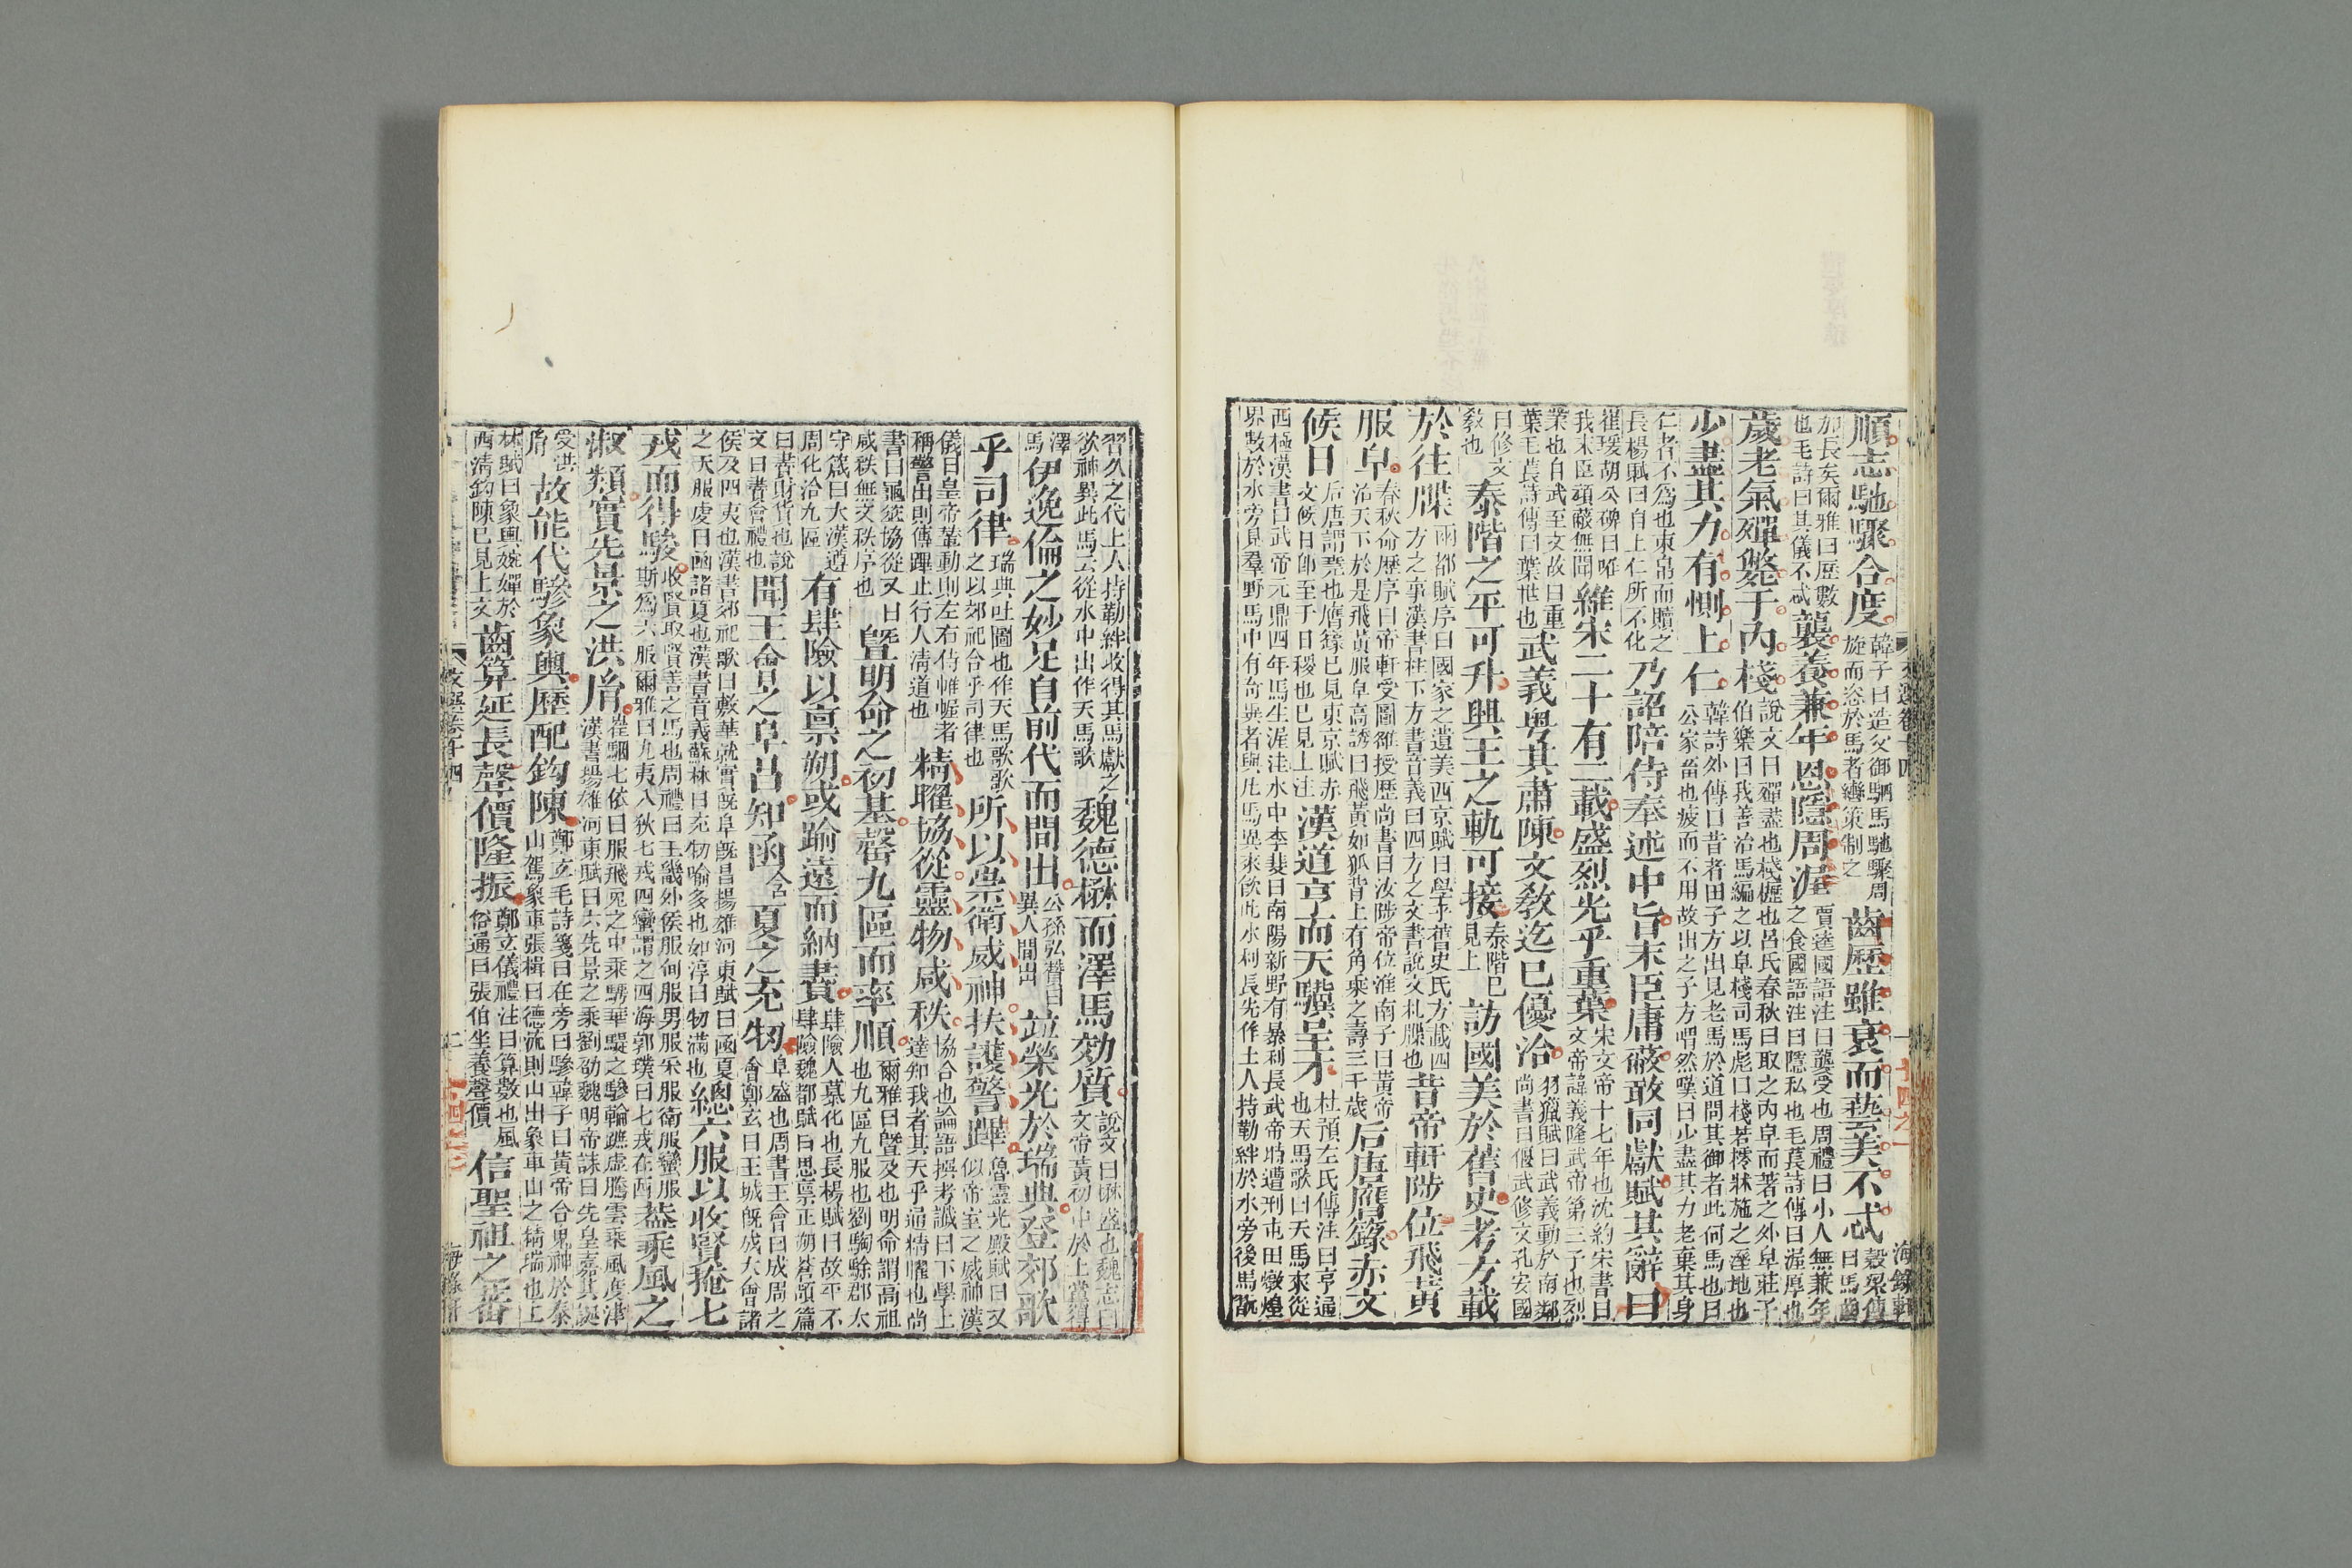 順志馳驟合度韓子曰造父御駟馬馳驟周旋而恣於馬者轡策制之齒歷雖衰而藝美不忒穀梁傳曰馬齒
加長矣爾雅曰歷數也毛詩曰其儀不忒襲養兼年恩隱周渥賈逵國語注曰襲受也周禮曰小人無兼年之食國語注曰隱私也毛萇詩傳曰渥厚也
歲老氣殫斃于內棧說文曰殫盡也棧櫪也呂氏春秋曰取之內皁而著之外皁莊子伯樂曰我善治馬編之以皁棧司馬彪曰棧若櫺牀施之溼地也
少盡其力有惻上仁韓詩外傳曰昔者田子方出見老馬於道問其御者此何馬也曰公家畜也疲而不用故出之子方喟然嘆曰少盡其力老棄其身
仁者不為也束帛而贖之長楊賦曰自上仁所不化乃詔陪侍奉述中旨末臣庸蔽敢同獻賦其辭曰
崔瑗胡公碑曰唯我末臣頑蔽無聞維宋二十有二載盛烈光乎重葉宋文帝十七年也沈約宋書曰文帝諱義隆武帝第三子也烈
業也自武至文故曰重葉毛萇詩傳曰葉世也武義粵其肅陳文敎迄已優洽羽獵賦曰武義動於南鄰尚書曰偃武修文孔安國
曰修文敎也泰階之平可升興王之軌可接泰階已見上訪國美於舊史考方載
於往牒兩都賦序曰國家之遺美西京賦曰學乎舊史氏方載四方之事漢書柱下方書音義曰四方之文書說文札牒也昔帝軒陟位飛黃
服皁春秋命歷序曰帝軒受圖雒授歷尚書曰汝陟帝位淮南子曰黃帝治天下於是飛黃服皁高誘曰飛黃如狐背上有角乘之壽三千歲后唐膺籙赤文
候日后唐謂堯也膺籙已見東京賦赤文候日卽至于日稷也已見上注漢道亨而天驥呈才杜預左氏傳注曰亨通也天馬歌曰天馬來從
西極漢書曰武帝元鼎四年馬生渥洼水中李斐曰南陽新野有暴利長武帝時遭刑屯田燉煌界數於水旁見羣野馬中有奇異者與凡馬異來飲此水利長先作土人持勒絆於水旁後馬翫
習久之代土人持勒絆收得其馬獻之欲神異此馬云從水中出作天馬歌魏德楙而澤馬效質說文曰楙盛也魏志曰文帝黃初中於上黨得
澤馬伊逸倫之妙足自前代而間出公孫弘贊曰異人間出竝榮光於瑞典登郊歌
乎司律瑞典吐圖也作天馬歌歌之以郊祀合乎司律也所以崇衛威神扶護警蹕魯靈光殿賦曰又似帝室之威神漢
儀曰皇帝輦動則左右侍帷幄者稱警出則傳蹕止行人淸道也精曜協從靈物咸秩協合也論語撰考讖曰下學上達知我者其天乎通精曜也尚
書曰龜筮協從又曰咸秩無文秩序也曁明命之初基罄九區而率順爾雅曰曁及也明命謂高祖也九區九服也劉騊駼郡太
守箴曰大漢遵周化洽九區有肆險以禀朔或踰遠而納賮肆險人慕化也長楊賦曰故平不肆險魏都賦曰思禀正朔蒼頡篇
曰賮財貨也說文曰賮會禮也聞王會之阜昌知函含夏之充牣阜盛也周書王會曰成周之會鄭玄曰王城旣成大會諸
侯及四夷也漢書郊祀歌曰敷華就實旣阜旣昌揚雄河東賦曰函夏之大服虔曰函諸夏也漢書音義蘇林曰充牣喻多也如淳曰牣滿也總六服以收賢掩七
戎而得駿收賢取賢善之馬也周禮曰王畿外侯服甸服男服采服衛服蠻服斯為六服爾雅曰九夷八狄七戎四蠻謂之四海郭璞曰七戎在西蓋乘風之
淑類實先景之洪胤崔駰七依曰服飛兔之中乘騁華騠之驂輪蹠虛騰雲乘風度津漢書揚雄河東賦曰六先景之乘劉劭魏明帝誄曰先皇嘉其誕
受洪胤故能代驂象輿歷配鉤陳鄭玄毛詩箋曰在旁曰驂韓子曰黃帝合鬼神於泰山駕象車張楫曰德流則山出象車山之精瑞也上
林賦曰象輿婉蟬於西淸鉤陳已見上文齒算延長聲價隆振鄭玄儀禮注曰算數也風俗通曰張伯坐養聲價信聖祖之蕃